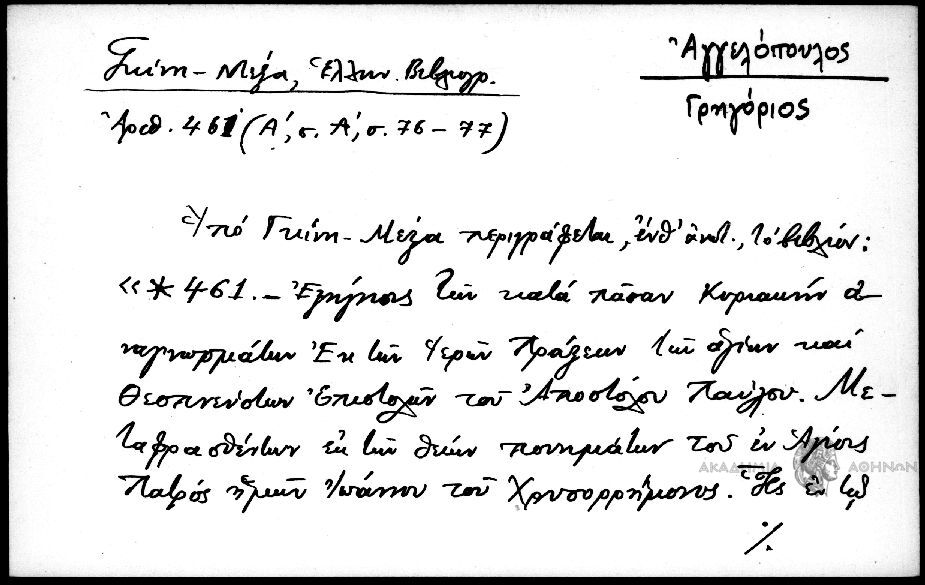 Γκίνη – Μέξα, Ἑλλην. Βιβλιογρ.
Ἀριθ. 461 (Α΄, τ. Α΄, σ. 76 – 77)
Ἀγγελόπουλος
Γρηγόριος
Ὑπό Γκίνη – Μέξα περιγράφεται, ἔνθ' ἀνωτ., τό βιβλίον:
«* 461. – Ἐξήγησις τῶν κατά πᾶσαν Κυριακήν ἀ-
ναγνωσμάτων Ἐκ τῶν Ἱερῶν Πράξεων τῶν ἁγίων καί
Θεοπνεύστων Ἐπιστολῶν τοῦ Ἀποστόλου Παύλου. Με-
ταφρασθέντων ἐκ τῶν θείων πονημάτων τοῦ ἐν Ἁγίοις
Πατρός ἡμῶν Ἰωάννου τοῦ Χρυσορρήμονος. Ἧς ἐν τῷ
ΑΚΑΔΗΜΙΑ ΑΘΗΝΩΝ
./.